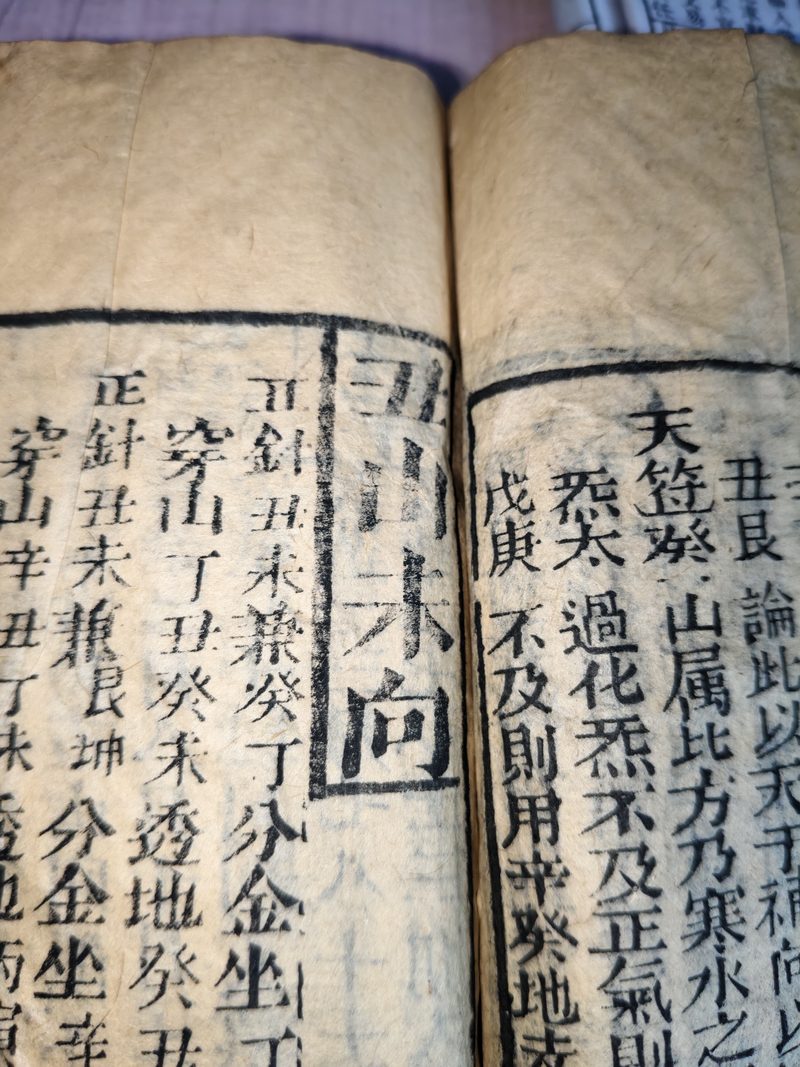 丑艮論此以天干補向以
天符癸山属北方乃寒水之
炁太過化炁不及正氣則
戊庚不及則用辛癸地支
丑山未向
正針丑未兼癸丁分金坐丁
穿山丁丑癸未透地癸丑
正針丑未兼艮坤分金坐辛
穿山辛丑丁未透地丙寅